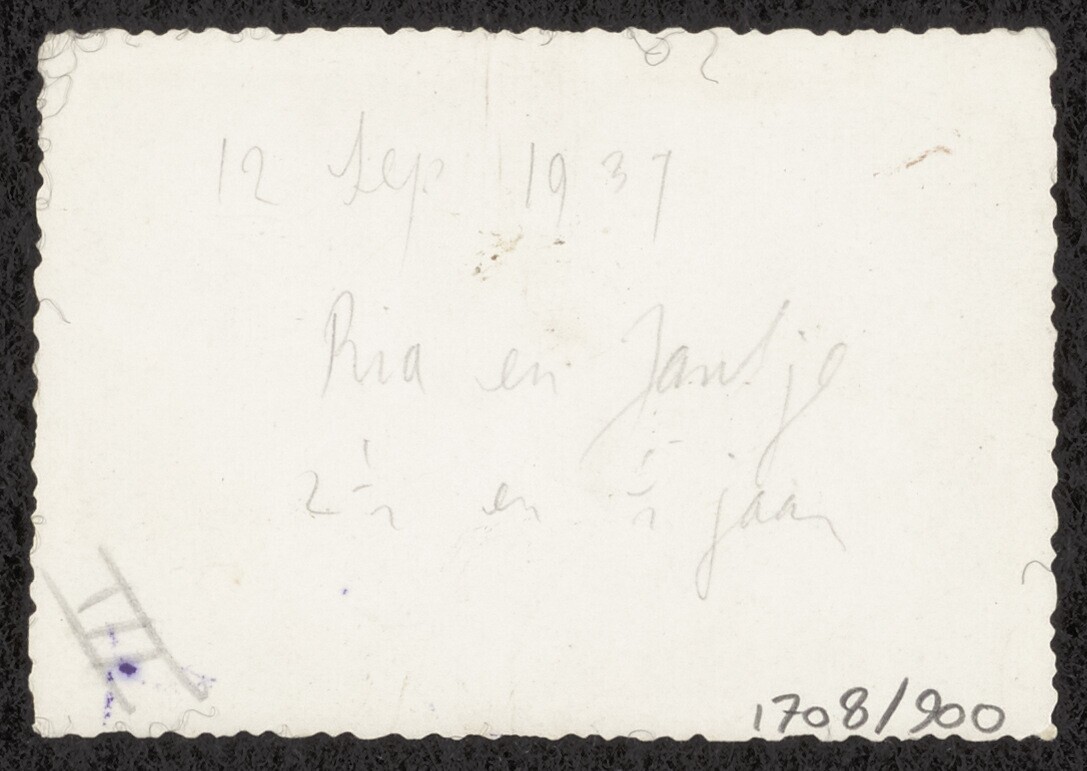 12 Sep 1937
Ria en Jantje
2½ en ½ jaar
1708/900